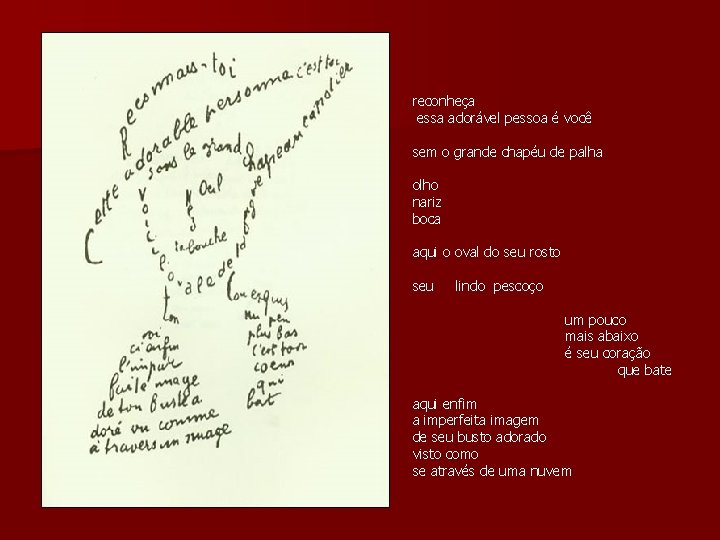 Reconnais-toi
Cette adorable personne c'est toi
sous le grand chapeau canotier
Oeil
Nez
la bouche
Voici l'ovale de ta figure
Ton
Cou exquis
voi
ci enfin
l'impar
faite image
de ton buste a
doré vu comme
à travers un nuage
un peu
plus bas
c'est ton
coeur
qui
bat
reconheça
essa adorável pessoa é você
sem o grande chapéu de palha
olho
nariz
boca
aqui o oval do seu rosto
seu lindo pescoço
um pouco
mais abaixo
é seu coração
que bate
aqui enfim
a imperfeita imagem
de seu busto adorado
visto como
se através de uma nuvem